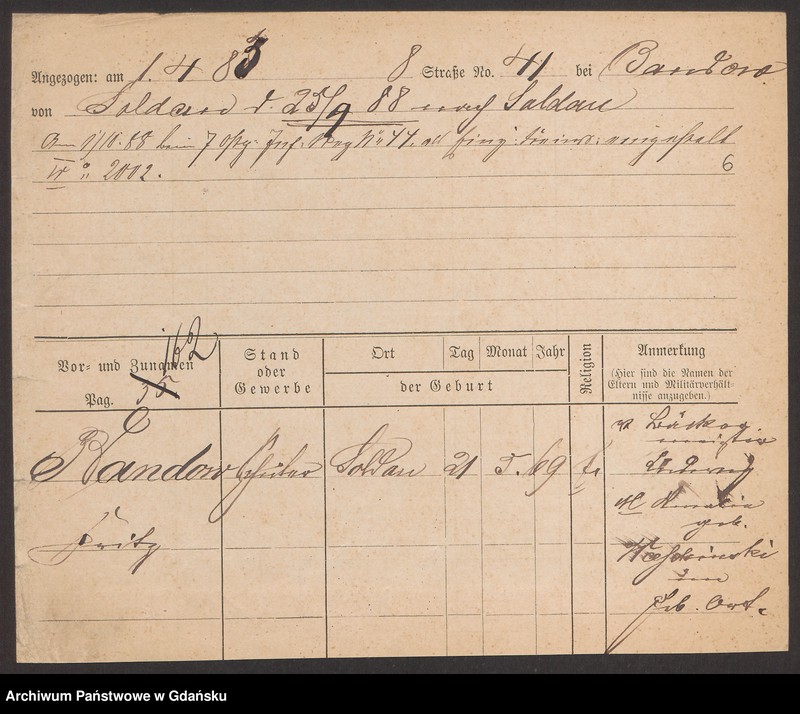 Angezogen: am 1. 4 83 8 Straße No. 41 bei Bandow
von Soldau d. 25/9 88 nach Soldau
Am 1/10. 88 beim 7 Ostp. Inf. Reg No 44. als einj. freiw. eingestellt
6
2002.
162
Vor- und Zunamen
Pag. 55
Stand
oder
Gewerbe
Ort Tag Monat Jahr
der Geburt
Religion
Anmerkung
(Hier sind die Namen der
Eltern und Militärverhält-
nisse anzugeben.)
Bandow Schüler Soldau 21 5. 69
Fritz
V Bäcker
meister
Ludwig
M Amalia
geb.
im
Geb. Ort.
Archiwum Państwowe w Gdańsku